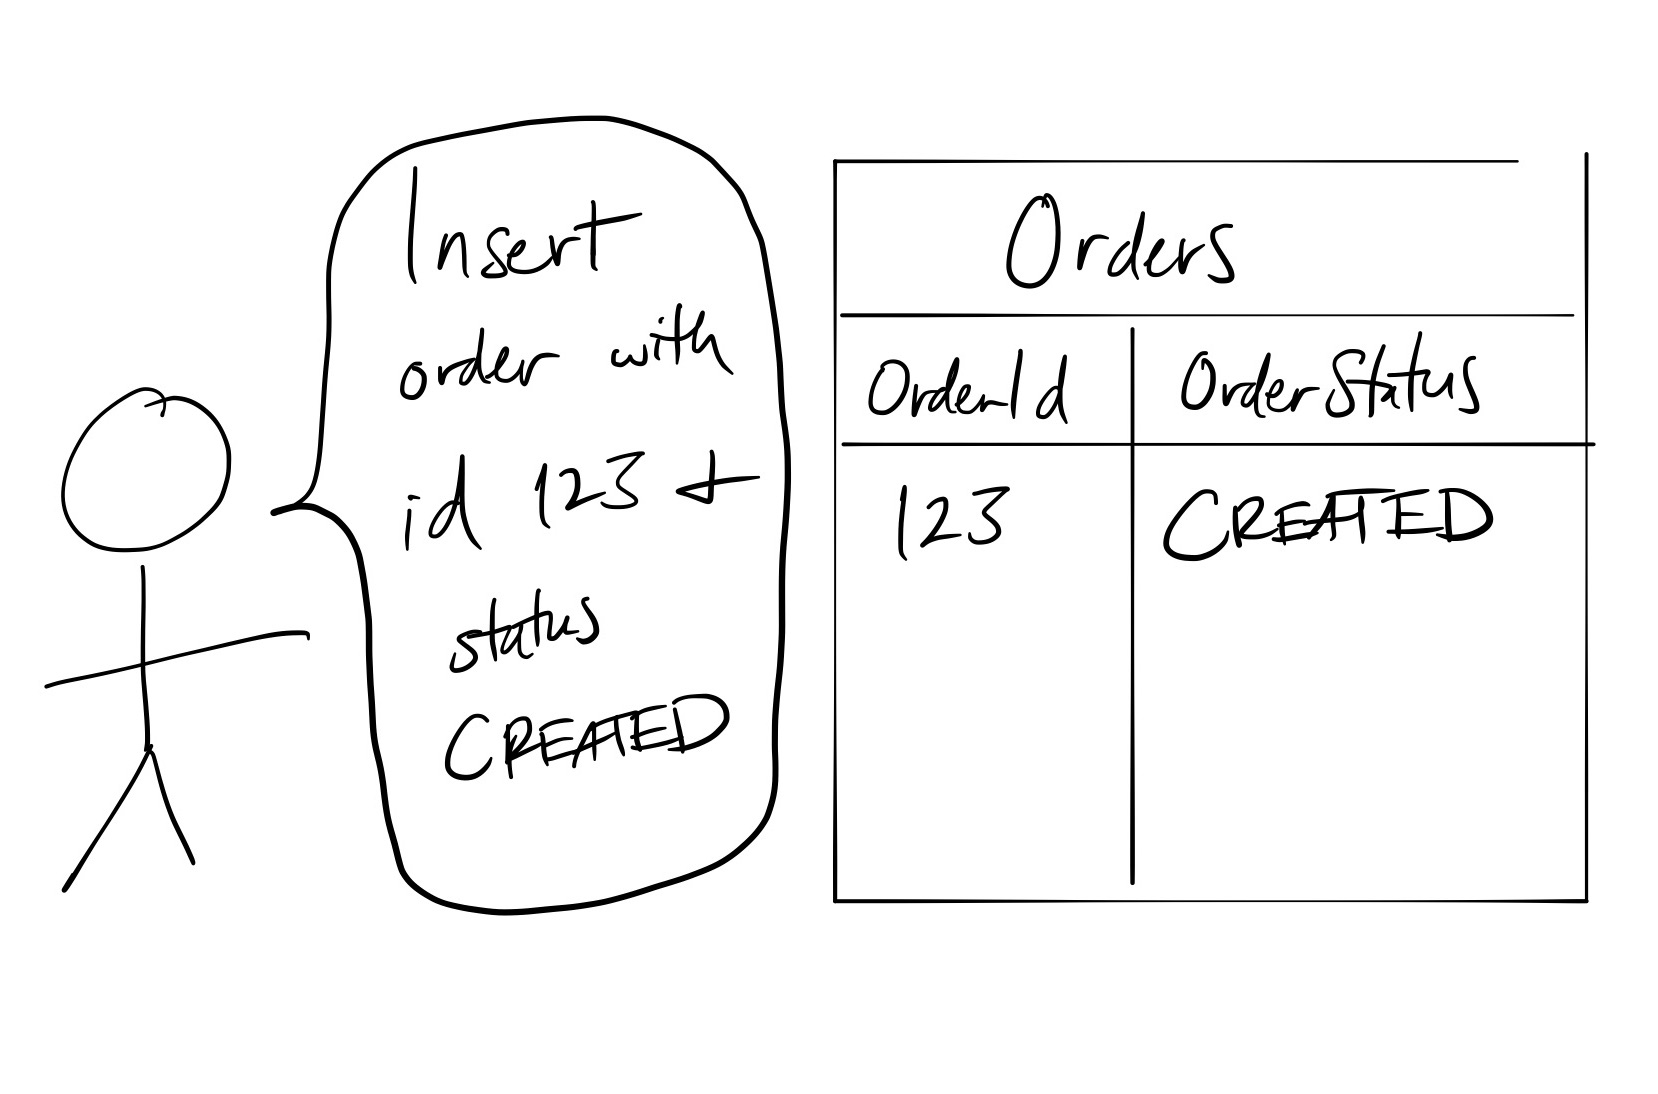 Insert
order with
id 123 +
status
CREATED
Orders
OrderId OrderStatus
123 CREATED